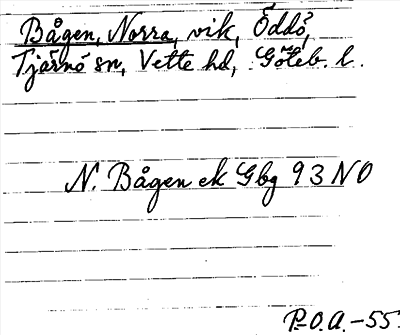 Bågen, Norra, vik, Öddö,
Tjärnö sn, Vette hd, Göteb. l.
N. Bågen ek Gbg 93 NO
P.O.A. -55.